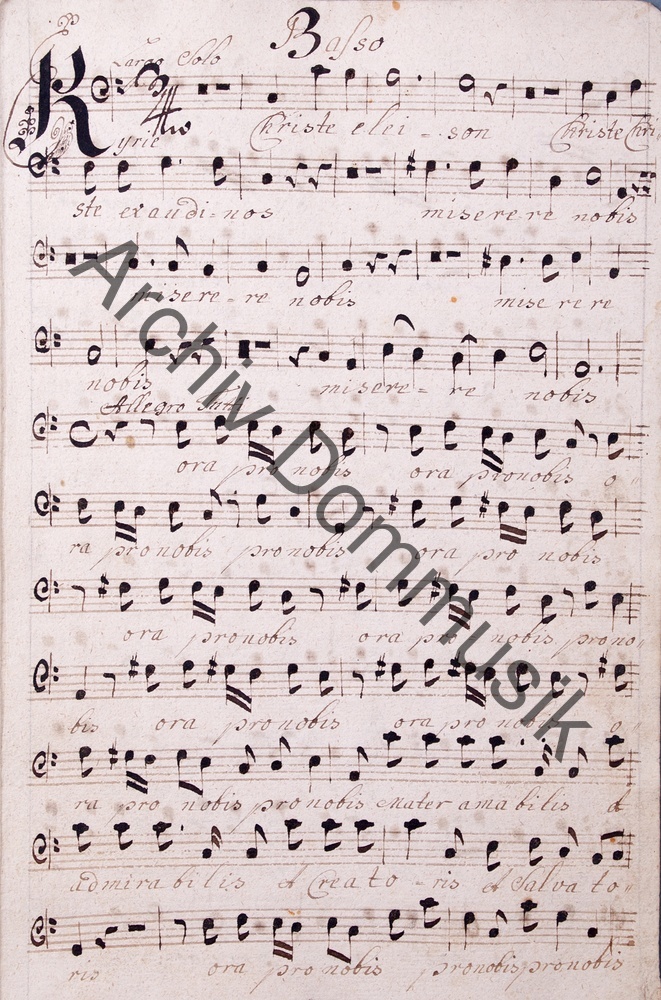 Basso
Largo Solo
Kyrie Christe elei - son Christe Chri -
ste exaudi - nos misere re nobis
misere - re nobis mise re re
nobis misere - re nobis
Allegro Tutti
ora pro nobis ora pronobis o -
ra pro nobis pro nobis ora pro nobis
ora pronobis ora pro nobis prono -
bis ora pro nobis ora pro nobis o -
ra pro nobis pro nobis Mater amabilis et
admirabilis et Creato - ris et Salvato -
ris ora pro nobis pronobis pronobis
Archiv Dommusik